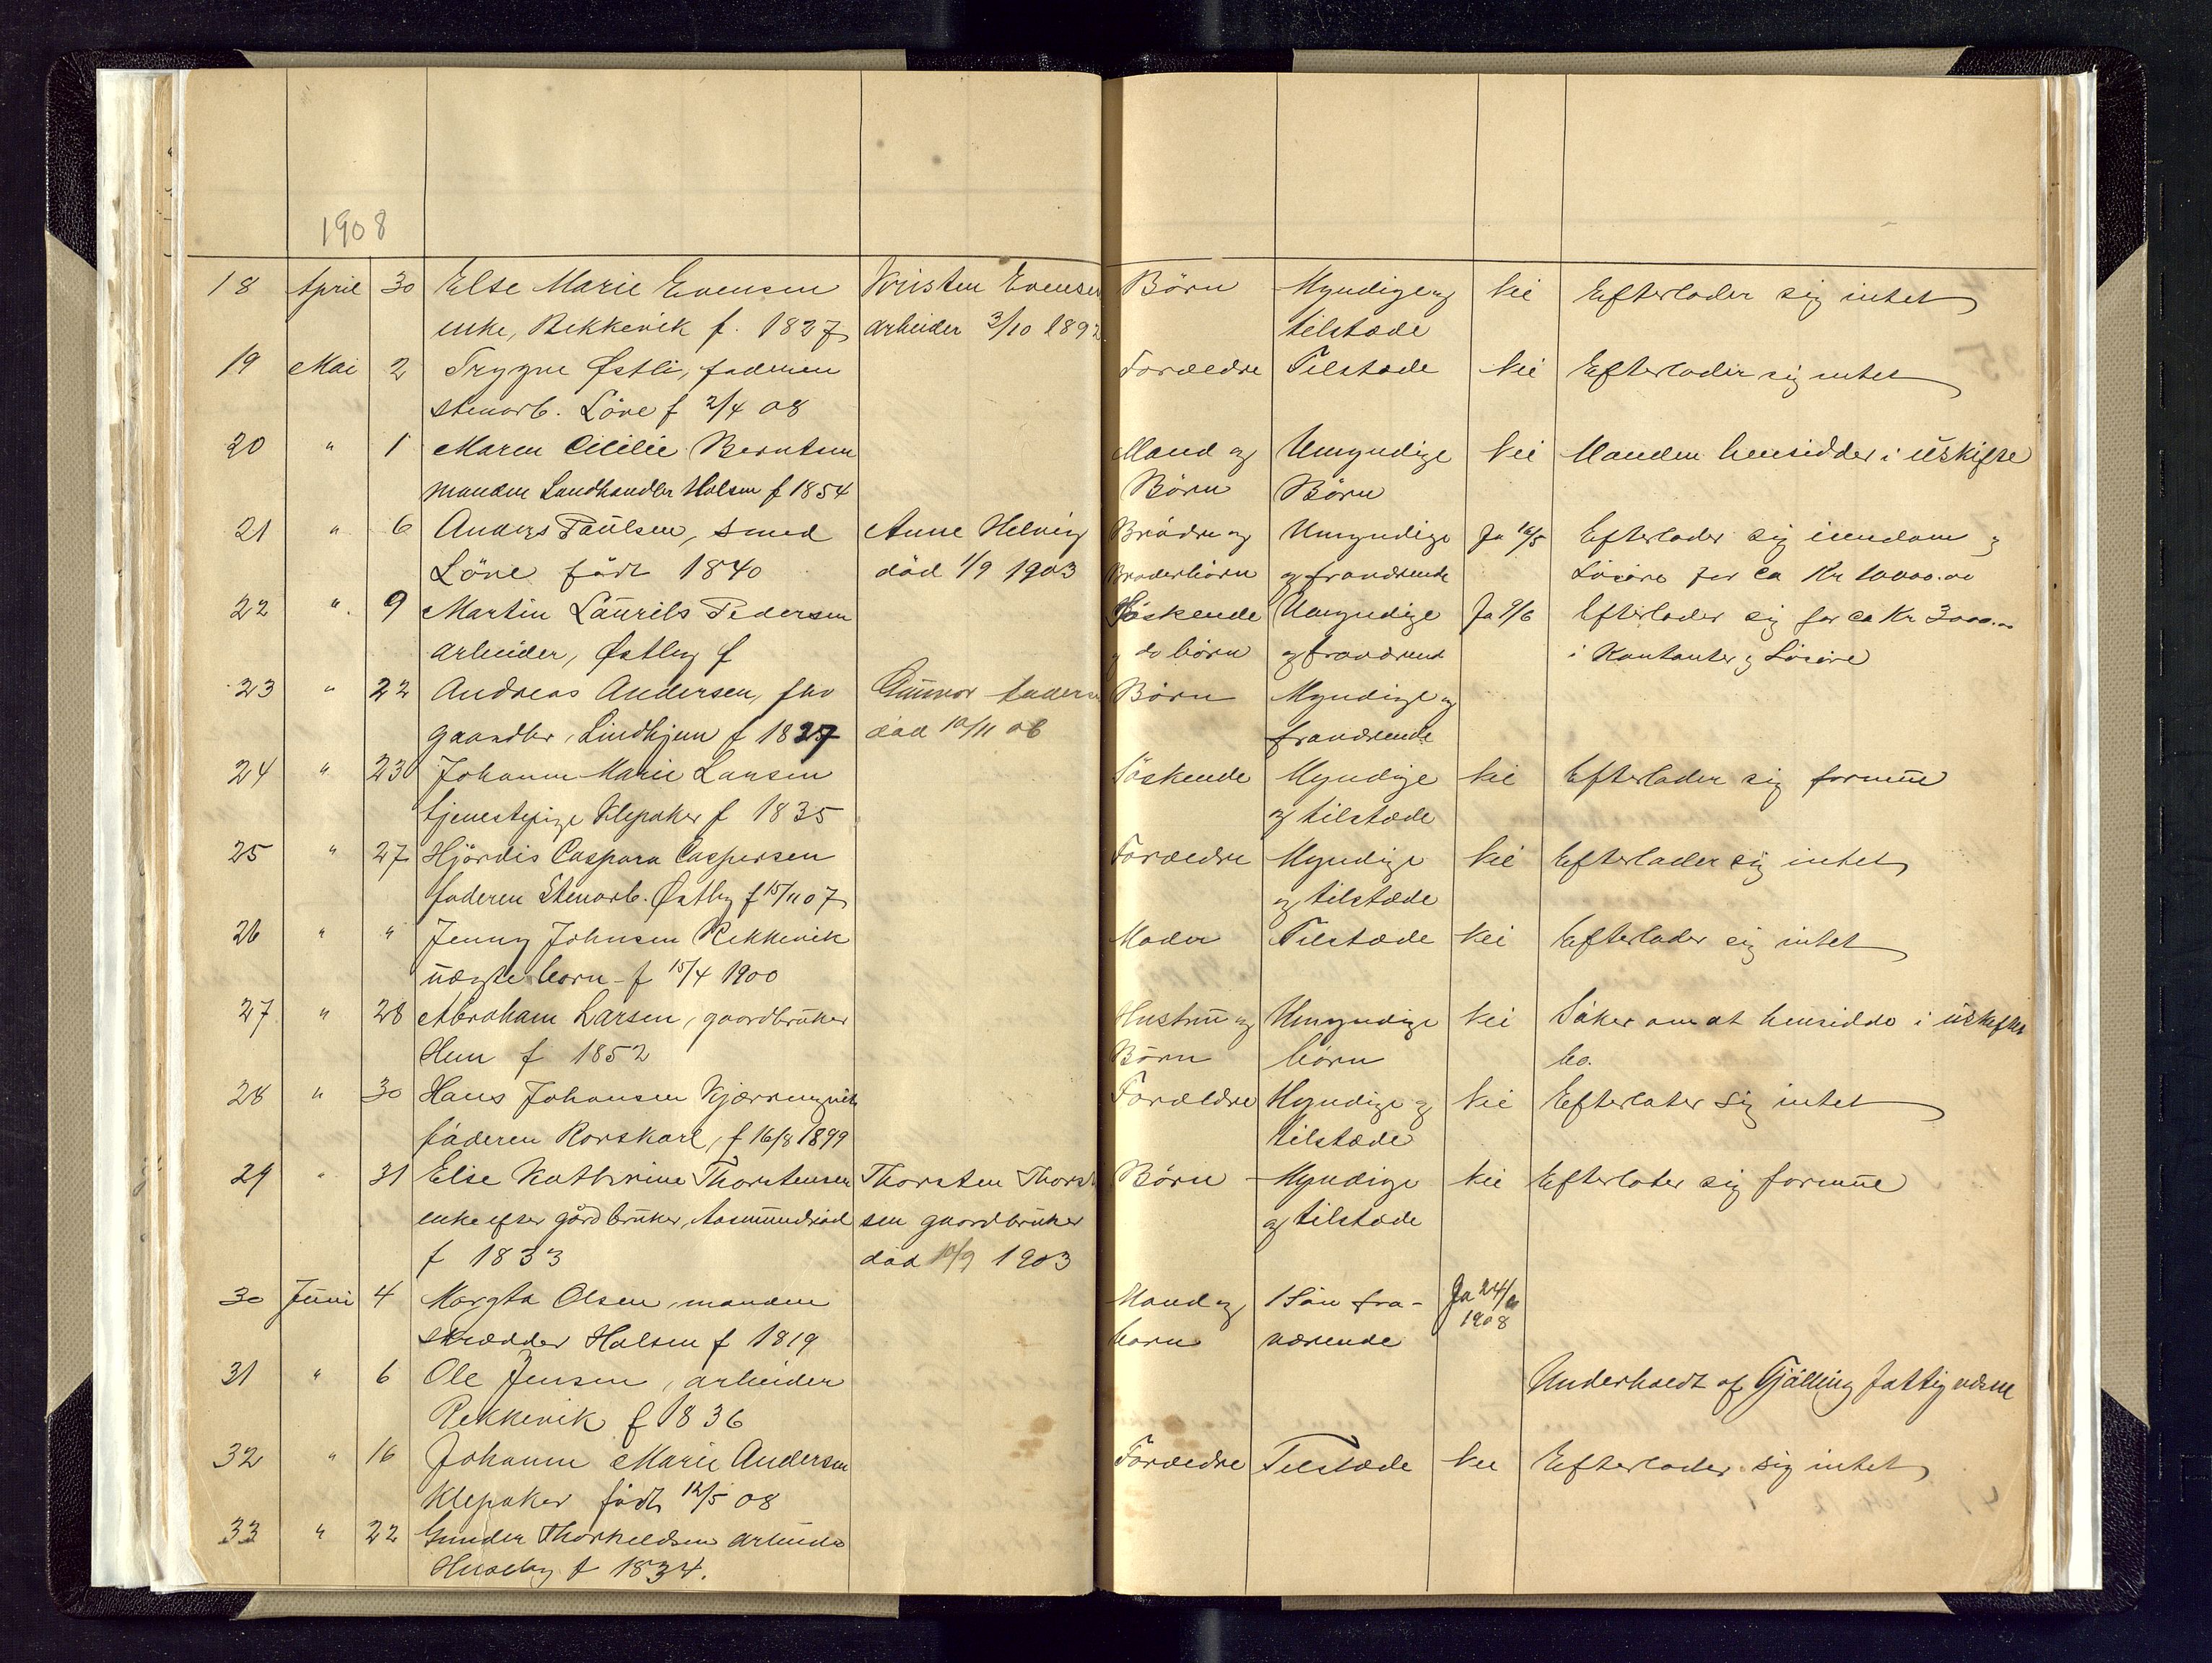 1908
18 April 30 Else Marie Evensen Kristen Evensen Børn Myndige og Nei Efterlader sig intet
enke, Rekkevik f. 1827 arbeider 3/10 189 tilstede
19 Mai 2 Trygve Østli, faderen Forældre Tilstæde Nei Efterlader sig intet
stenarb. Löve f 2/4 08
20 " 1 Maren Cicilie Berntsen Mand og Umyndige Nei Manden hensidder i uskifte
manden Landhandler Halsen f 1854 Börn Börn
21 " 6 Anders Paulsen, smed Anne Helvig Brödre og Umyndige Ja 16/5 Efterlader sig eiendom og
Löve født 1840 död 1/9 1903 Broderbörn og fraværende Lösöre for ca Kr 10000.00
22 " 9 Martin Laurits Pedersen Söskende Umyndige Ja 9/6 Efterlader sig for ca Kr 3000.00
arbeider, Østby f og do börn og fraværend i Kontanter og Lösöre
23 " 22 Andreas Andersen, fhv Gunnor Anders Börn Myndige og
gaardbr, Lindhjem f 1837 död 10/11 06 fraværende
24 " 23 Johanne Marie Larsen Söskende Myndige Nei Efterlader sig formue
tjenestepige Klepaker f 1835 og tilstæde
25 " 27 Hjördis Caspara Caspersen Forældre Myndige Nei Efterlader sig intet
faderen Stenarb. Østby f 15/11 07 og tilstæde
26 " " Jenny Johnsen Rekkevik Moder Tilstæde Nei Efterlader sig intet
uægte barn f 15/4 1900
27 " 28 Abraham Larsen, gaardbruker Hustru og Umyndige Nei Söker om at hensidde i uskiftet
Hem f 1852 Börn börn bo.
28 " 30 Hans Johansen Kjærringvik Forældre Myndige og Nei Efterlater sig intet
faderen Rorskarl, f 16/8 1899 tilstæde
29 " 31 Else Kathrine Thorstensen Thorsten Thorst Börn Myndige Nei Efterlater sig formue
enke efter gårdbruker, Aasmundröd sen gaardbruker og tilstæde
f 1833 död 10/9 1903
30 Juni 4 Margta Olsen, manden Mand og 1 Sön fra- Ja 24/
skrædder Halsen f 1819 barn værende 1908
31 " 6 Ole Jensen, arbeider Underholdt af Tjölling fattigvæsen
Rekkevik f 1836
32 " 16 Johanne Marie Andersen Forældre Tilstæde Nei Efterlader sig intet
Klepaker född 12/5 08
33 " 22 Gunder Thorkildsen arbeider
Huseby f 1834.